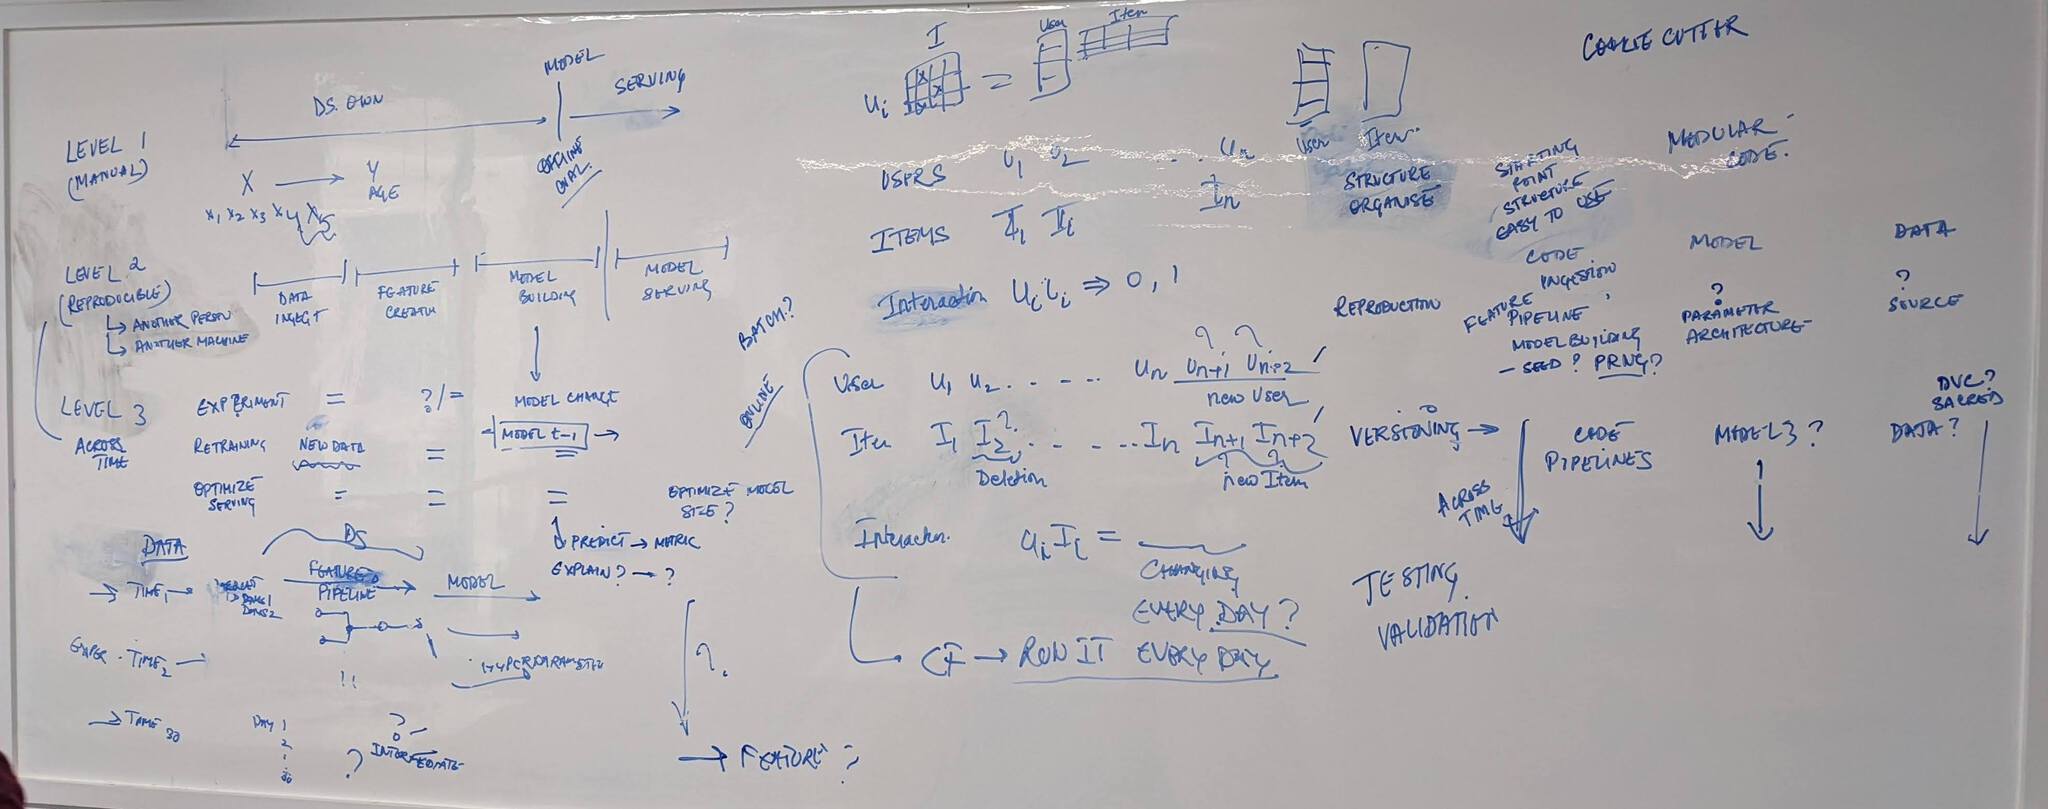 LEVEL 1
(MANUAL)
DS. OWN
MODEL
SERVING
OFFLINE
EVAL.
X → Y
AGE
x1 x2 x3 x4 x5
LEVEL 2
(REPRODUCIBLE)
↳ ANOTHER PERSON
↳ ANOTHER MACHINE
DATA
INGEST
FEATURE
CREATN
MODEL
BUILDING
MODEL
SERVING
LEVEL 3
ACROSS
TIME
EXPERIMENT = ?/= MODEL CHANGE
RETRAINING NEW DATA = MODEL t-1
OPTIMIZE
SERVING = = =
OPTIMIZE MODEL
SIZE?
BATCH?
ONLINE
PREDICT → METRIC
EXPLAIN? → ?
DATA
DS
→ TIME1 →
DAY 2
FEATURE
PIPELINE
MODEL
EXPER - TIME2 -
!!
HYPERPARAMETER
→ TIME 30
DAY 1
2
30
?
?
INTERMEDIATE
?
→ FEATURE?
I
Ui
=
User
Item
User
Item
USERS U1 U2 .. Un
ITEMS I1 Ii In
Interaction UiIi ⇒ 0, 1
? ?
User U1 U2 . . - - . Un Un+1 Un+2
new User
Item I1 I2? . . . . . In In+1 In+2
Deletion
? ?
new Item
Interactn. UiIi =
CHANGING
EVERY DAY?
CF → RUN IT EVERY DAY
COOKIE CUTTER
STRUCTURE
ORGANISE
STARTING
POINT
STRUCTURE
EASY TO USE
MODULAR
CODE.
REPRODUCTION
CODE
INGESTION
FEATURE
PIPELINE
MODEL BUILDING
- SEED? PRNG?
MODEL
?
PARAMETER
ARCHITECTURE
DATA
?
SOURCE
VERSIONING →
CODE
PIPELINES
MODEL 3?
DVC?
SACRED
DATA?
ACROSS
TIME
TESTING
VALIDATION